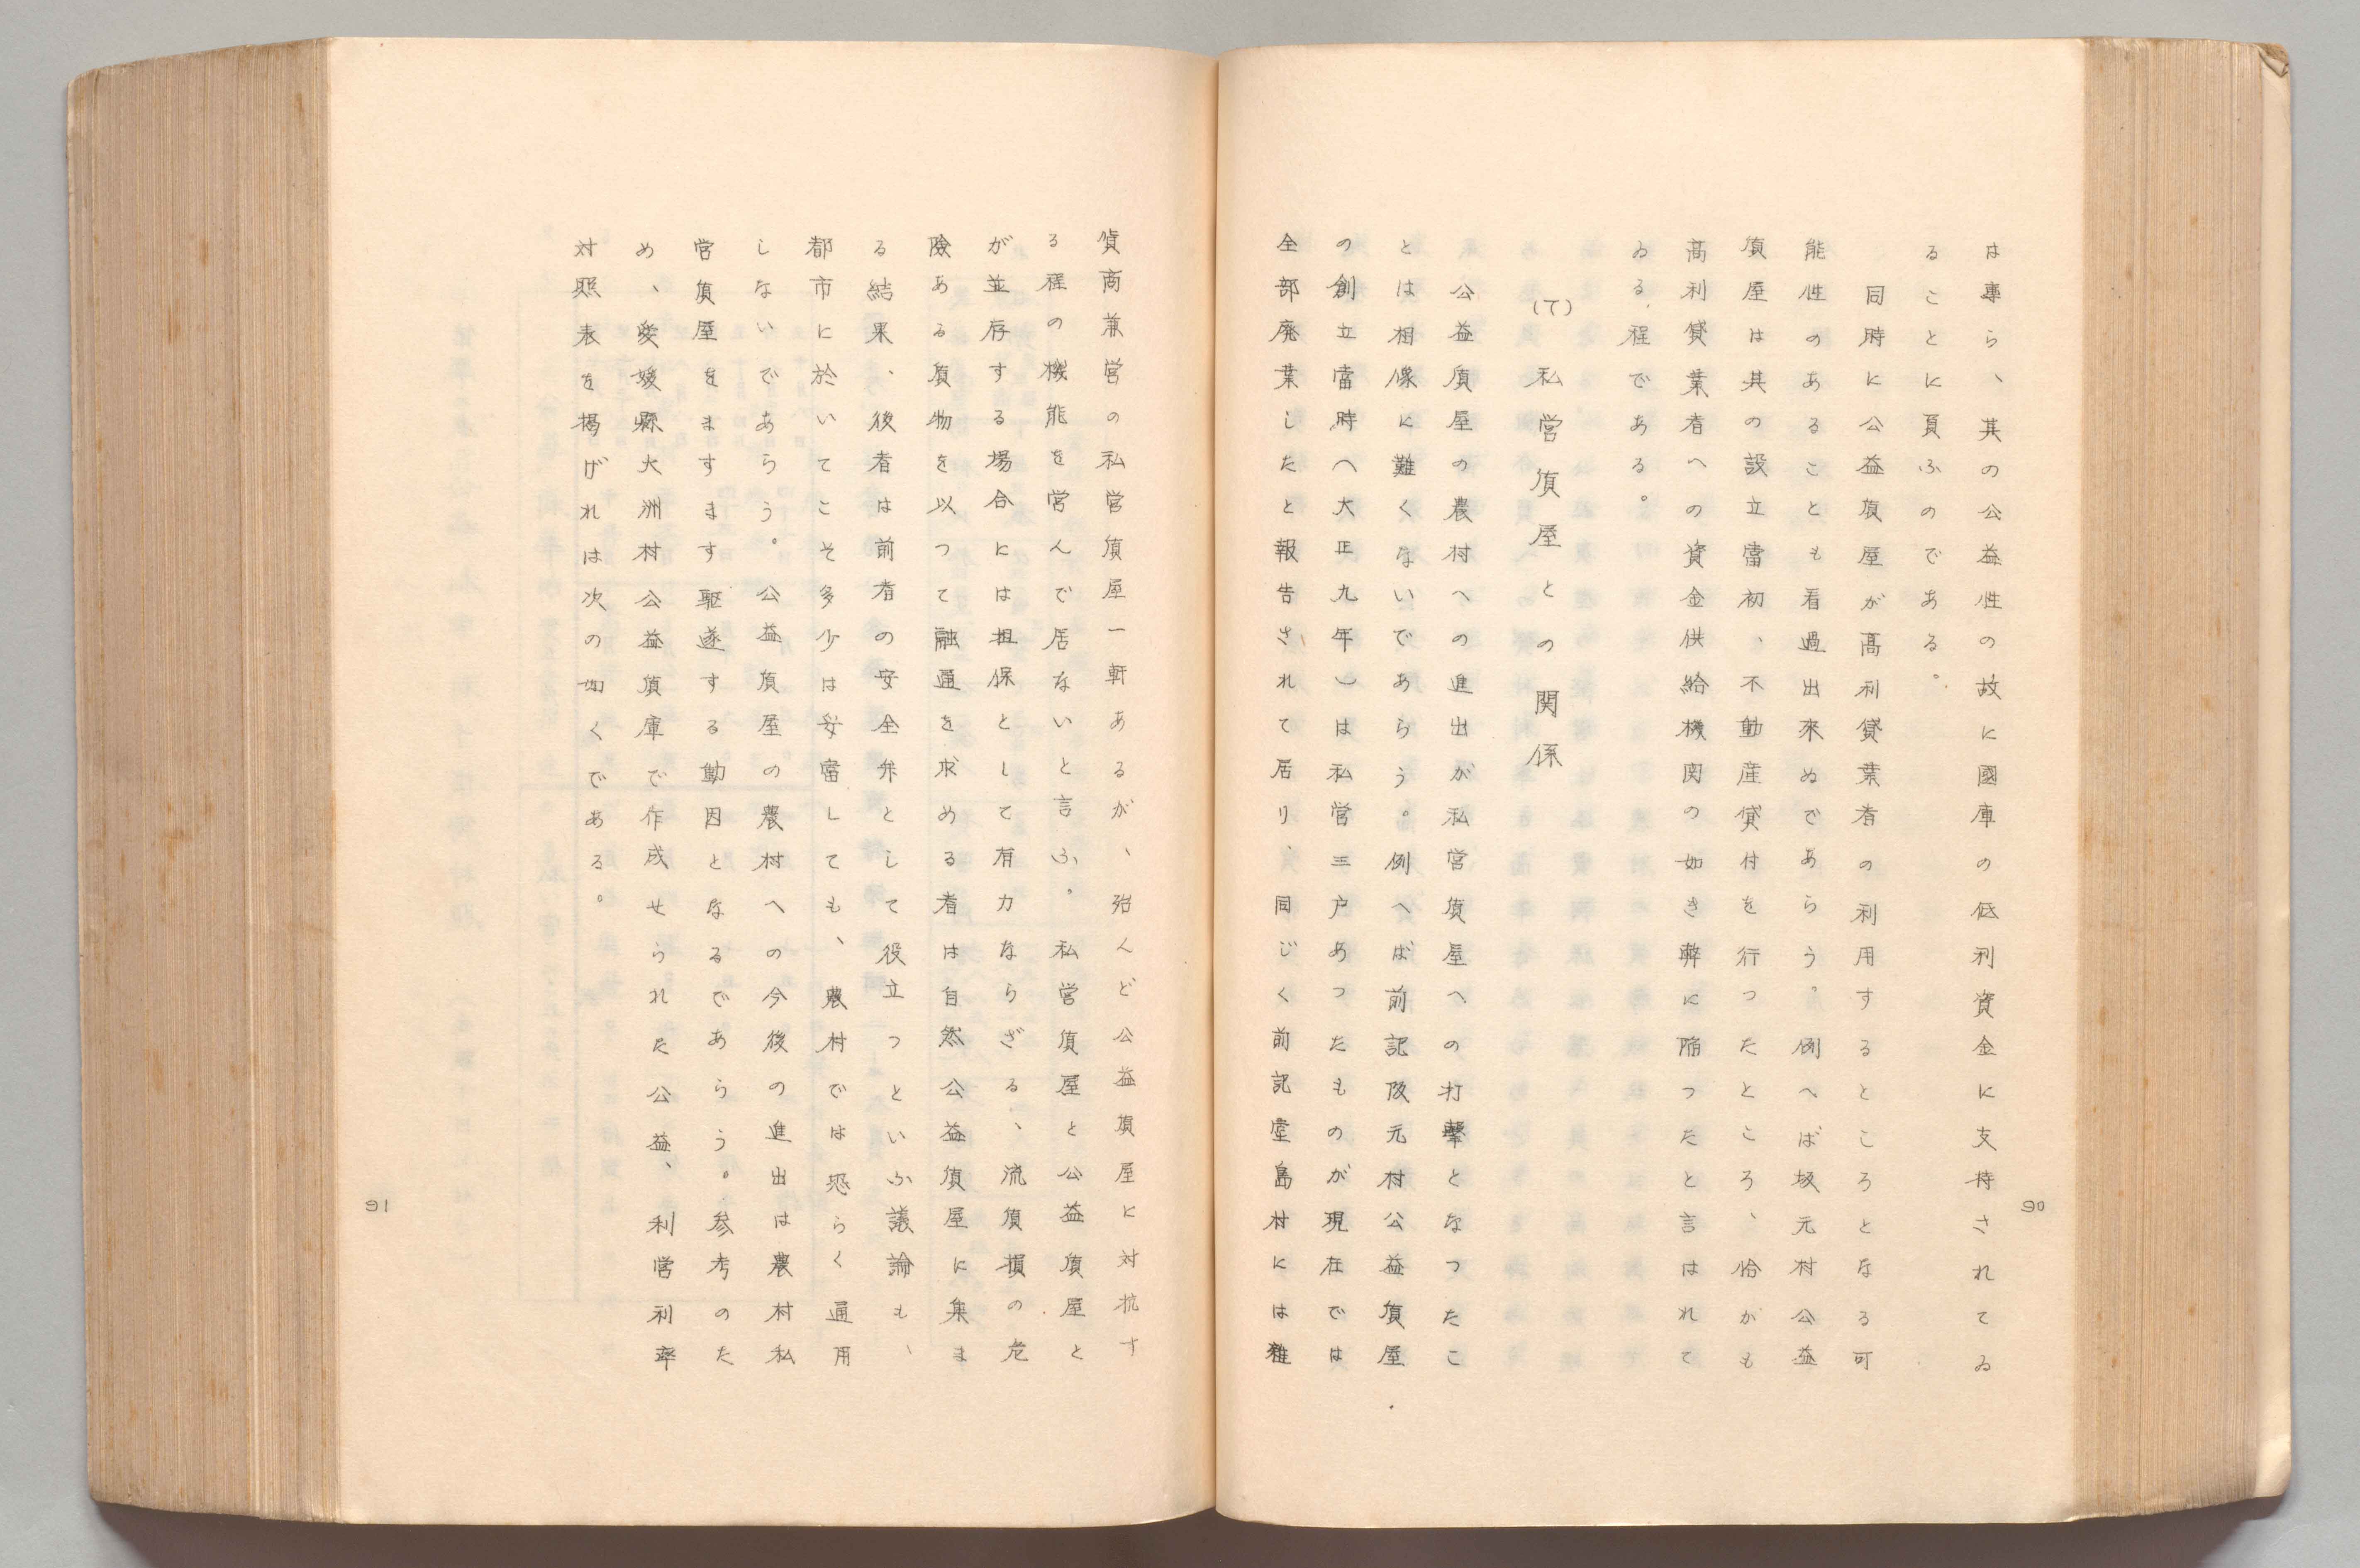 は專ら、其の公益性の故に國庫の低利資金に支持されてゐ
ることに負ふのである。
同時に公益質屋が高利貸業者の利用するところとなる可
能性のあることも看過出來ぬであらう。例へば坂元村公益
質屋は其の設立當初、不動産貸付を行つたところ、恰かも
高利貸業者への資金供給機関の如き弊に陥つたと言はれて
ゐる程である。
(て)私営質屋との関係
公益質屋の農村への進出が私営質屋への打擊となつたこ
とは相像に難くないであらう。例へば前記阪元村公益質屋
の創立當時(大正九年)は私営三戸あつたものが現在では
全部廃業したと報告されて居り、同じく前記堂島村には雑
90
貨商兼営の私営質屋一軒あるが、殆んど公益質屋に対抗す
る程の機能を営んで居ないと言ふ。私営質屋と公益質屋と
が並存する場合には担保として有力ならざる、流質損の危
險ある質物を以つて融通を求める者は自然公益質屋に集ま
る結果、後者は前者の安全弁として役立つといふ議論も、
都市に於いてこそ多少は妥當しても、農村では恐らく通用
しないであらう。公益質屋の農村への今後の進出は農村私
営質屋をますます駆逐する動因となるであらう。参考のた
め、愛媛縣大洲村公益質庫で作成せられた公益、利営利率
対照表を掲げれは次の如くである。
91